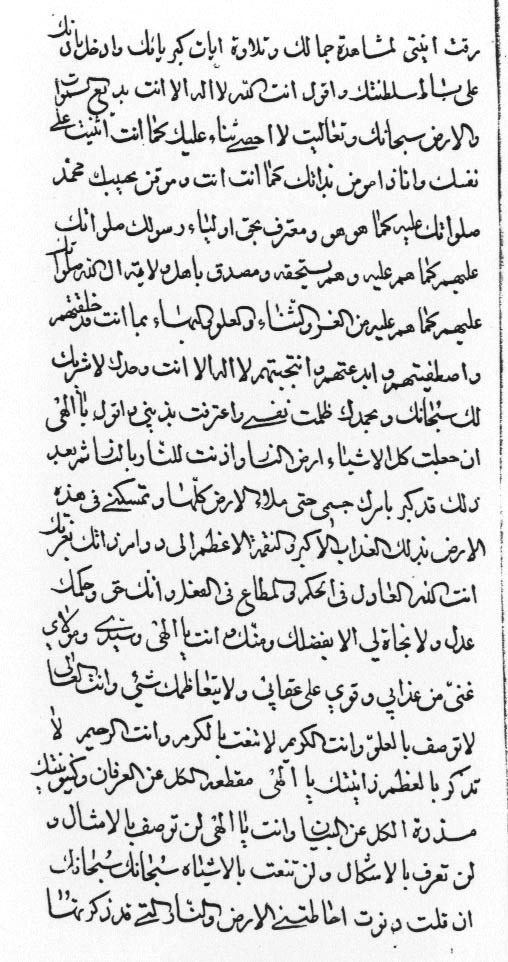 رقت انيتى لمشاهدة جمالك و تلاوة ايات كبريائك وادخل باذنك
على بساط سلطنتك و اقول انت الله لا اله الا انت بديع السموات
والارض سبحانك و تعاليت لا احصى ثناء عليك كما انت اثنيت على
نفسك وانا ذا مومن بذاتك كما انت انت و موقن بحبيبك محمد
صلواتك عليه كما هو هو و معترف بحق اولياء رسولك صلواتك
عليهم كما هم عليه و هم يستحقه و مصدق باهل ولاية ال الله صلواتك
عليهم كما هم عليه من العز والثناء والعلو والبهاء بما انت قد خلقتهم
واصطفيتهم و ابدعتهم وانتجبتهم لا اله الا انت وحدك لا شريك
لك سبحانك و بحمدك ظلمت نفسى واعترفت بذنبى و اقول يا الهى
ان جعلت كل الاشياء ارض النار واذنت للنار بالنار بعد
ذلك قد كبر بامرك جسمى حتى ملاء الارض كلها و تمسكنى فى هذه
الارض بذلك العذاب الاكبر والنقمة الاعظم الى دوام ذاتك بعزتك
انت الله العادل فى الحكم والمطاع فى الفعل و انك حق و حكمك
عدل و لا نجاة لى الا بفضلك و منك و انت يا الهى و سيدى و مولاى
غنى من عذابى و قوى على عقابى و لا يتعاظمك شىء وانت العالى
لا توصف بالعلو وانت الكريم لا تنعت بالكرم وانت الرحيم لا
تذكر بالعظم ذاتيتك يا الهى مقطعه الكل عن العرفان وكينونيتك
مسددة الكل عن البيان وانت يا الهى لن توصف بالامثال و
لن تعرف بالاشكال و لن تنعت بالاشباه سبحانك سبحانك
ان قلت دنوت احاطتنى الارض والنار التى قد ذكرتها